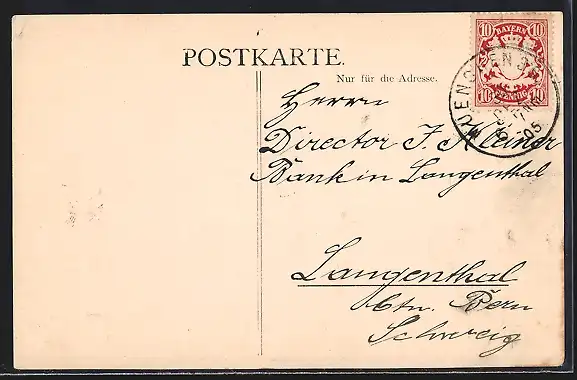 POSTKARTE.
Nur für die Adresse.
10 BAYERN 10
10 PFENNIG 10
MUENCHEN
05
Herrn
Director J. Kleiner
Bank in Langenthal
Langenthal
Ctn. Bern
Schweiz